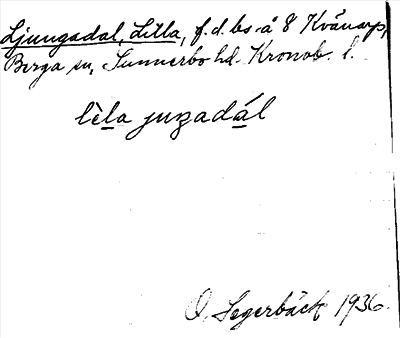 Ljungadal, Lilla, f.d. bs. å 8 Kvänarp,
Berga sn, Sunnerbo hd. Kronob. l.
lèla juŋadál
O. Segerbäck 1936.